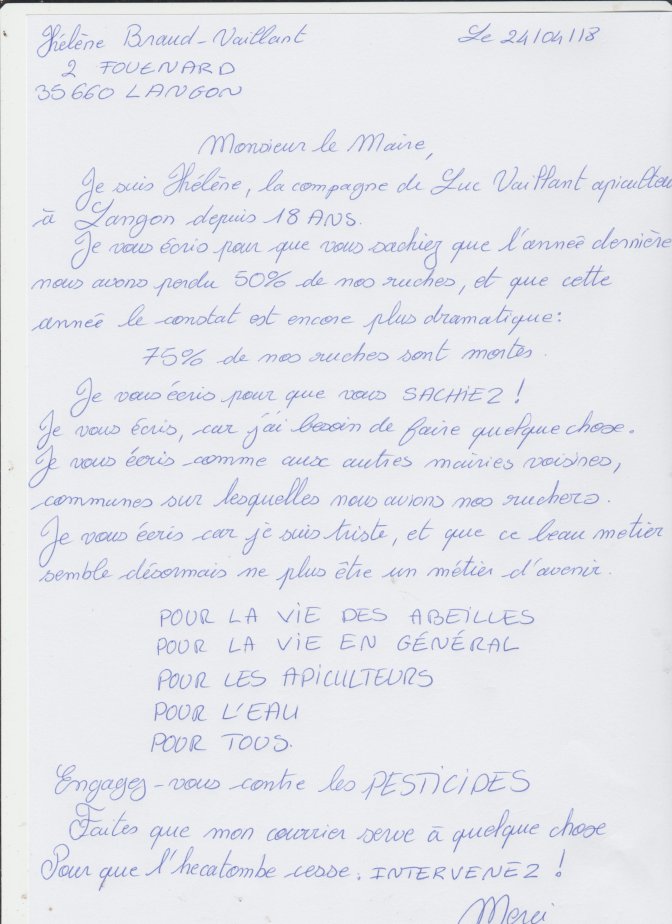 Hélène Braud-Vaillant Le 24/04/18
2 FOUENARD
35660 LANGON
Monsieur le Maire,
Je suis Hélène, la compagne de Luc Vaillant apiculteur
à Langon depuis 18 ANS.
Je vous écris pour que vous sachiez que l'année dernière
nous avons perdu 50% de nos ruches, et que cette
année le constat est encore plus dramatique :
75% de nos ruches sont mortes.
Je vous écris pour que vous SACHIEZ !
Je vous écris, car j'ai besoin de faire quelque chose.
Je vous écris comme aux autres mairies voisines,
communes sur lesquelles nous avions nos ruchers.
Je vous écris car je suis triste, et que ce beau metier
semble désormais ne plus être un métier d'avenir.
POUR LA VIE DES ABEILLES
POUR LA VIE EN GÉNÉRAL
POUR LES APICULTEURS
POUR L'EAU
POUR TOUS.
Engagez-vous contre les PESTICIDES
Faites que mon courrier serve à quelque chose
Pour que l'hecatombe cesse. INTERVENEZ !
Merci